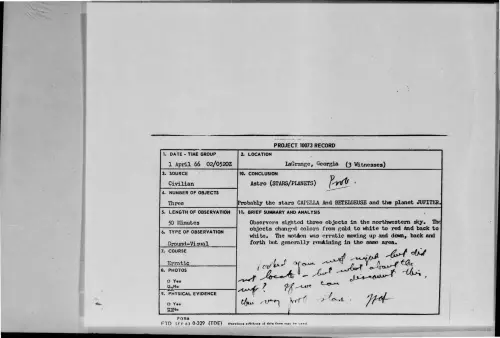 PROJECT 10073 RECORD
1. DATE - TIME GROUP
1 April 66 02/0520Z
2. LOCATION
LaGrange, Georgia (3 Witnesses)
3. SOURCE
Civilian
10. CONCLUSION
Astro (STARS/PLANETS) Prob.
Probably the stars CAPELLA And BETELGEUSE and the planet JUPITER.
4. NUMBER OF OBJECTS
Three
5. LENGTH OF OBSERVATION
50 Minutes
11. BRIEF SUMMARY AND ANALYSIS
Observers sighted three objects in the northwestern sky. The
objects changed colors from gold to white to red and back to
white. The motion was erratic moving up and down, back and
forth but generally remaining in the same area.
6. TYPE OF OBSERVATION
Ground-Visual
7. COURSE
Erratic
8. PHOTOS
□ Yes
No
9. PHYSICAL EVIDENCE
□ Yes
No
looked again next night but did
not locate - but what about
If we can discount this,
then very prob stars.
FORM
FTD SEP 63 0-329 (TDE) Previous editions of this form may be used.